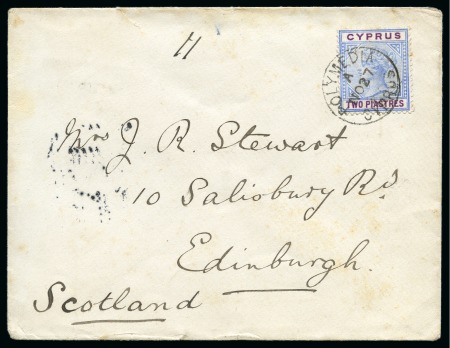 H
CYPRUS
POLYMEDIA
A
NO 27
CYPRUS
TWO PIASTRES
Mrs J. R. Stewart
10 Salisbury Rd
Edinburgh.
Scotland